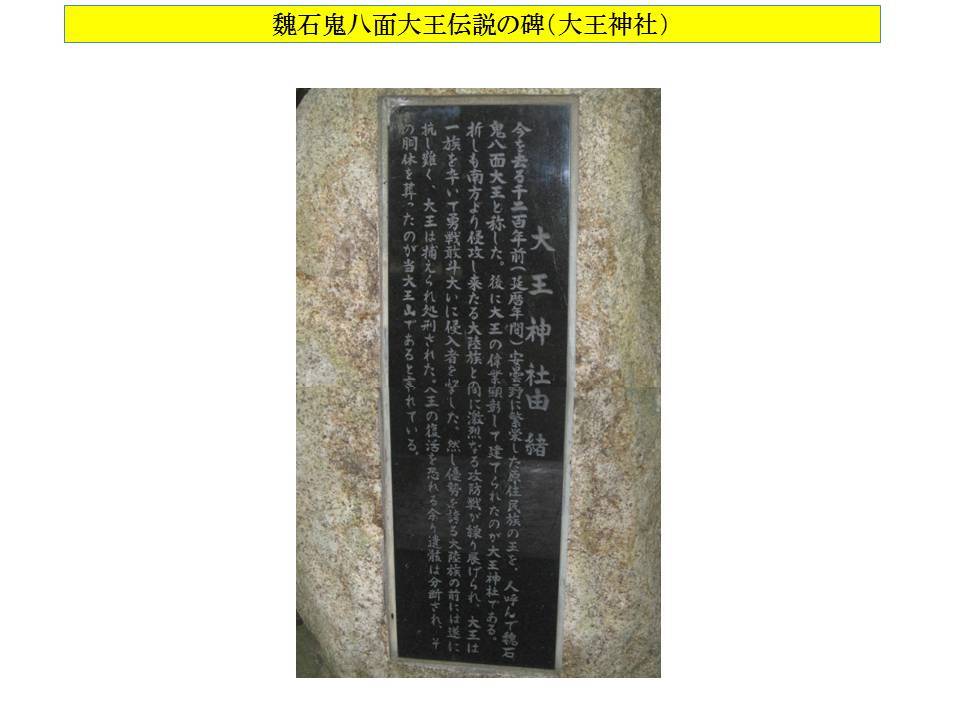 魏石鬼八面大王伝説の碑(大王神社)
大王神社由緒
今を去る千二百年前(延暦年間)安曇野に繁栄した原住民族の王を、人呼んで魏石
鬼八面大王と称した。後に大王の偉業顕彰して建てられたのが大王神社である。
折しも南方より侵攻し来たる大陸族と間に激烈なる攻防戦が繰り展げられ、大王は
一族を率いて勇戦敢斗大いに侵入者を撃した。然し優勢を誇る大陸族の前には遂に
抗し難く、大王は捕えられ処刑された。大王の復活を恐れる余り遺骸は分断され、そ
の胴体を葬ったのが当大王山であると言われている。